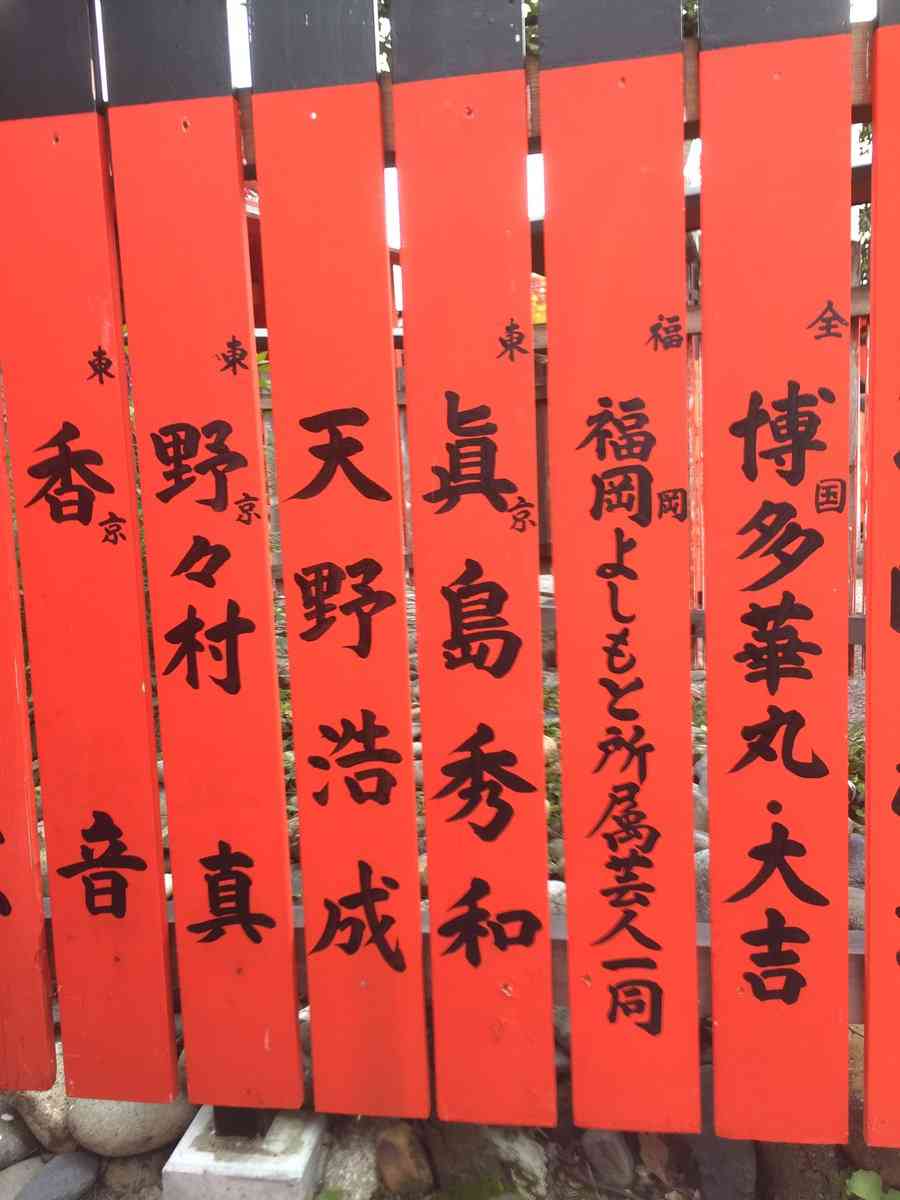 全国
博多華丸・大吉
福岡
福岡よしもと所属芸人一同
東京
眞島秀和
天野浩成
東京
野々村真
東京
香音